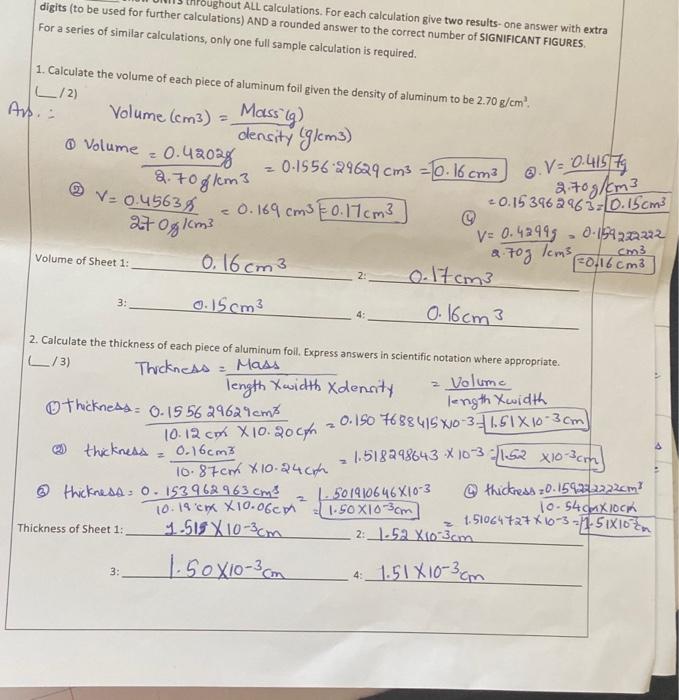 throughout ALL calculations. For each calculation give two results- one answer with extra
digits (to be used for further calculations) AND a rounded answer to the correct number of SIGNIFICANT FIGURES.
For a series of similar calculations, only one full sample calculation is required.
1. Calculate the volume of each piece of aluminum foil given the density of aluminum to be 2.70 g/cm³.
(__/2)
Ans. : Volume (cm3) = Mass (g)
density (g/cm3)
① Volume = 0.4202g
2.70 g/cm3
= 0.1556 29629 cm3 = 0.16 cm3
③. V = 0.4157g
2.70g/cm3
= 0.153962963 = 0.15cm3
② V = 0.4563g
270g/cm3
= 0.169 cm3 = 0.17cm3
④
V = 0.4299g
2.70g /cm3
= 0.159222222
cm3
= 0.16 cm3
Volume of Sheet 1: 0.16cm3 2: 0.17cm3
3: 0.15cm3 4: 0.16cm3
2. Calculate the thickness of each piece of aluminum foil. Express answers in scientific notation where appropriate.
(__/3)
Thickness = Mass
length X width X density
= Volume
length X width
① thickness = 0.155629629cm3
10.12 cm X 10.20cm
= 0.1507688415 X10-3 = 1.51 X 10-3cm
② thickness = 0.16cm3
10.87cm X 10.24cm
= 1.518298643 X 10-3 = 1.52 X10-3cm
③ thickness = 0.153962963 cm3
10.19cm X10.06cm
= 1.501910646X10-3
= 1.50 X10-3cm
④ thickness = 0.159222222cm3
10.54cmX10cm
= 1.51064727X10-3 = 1.51X10-3cm
Thickness of Sheet 1: 1.515 X 10-3cm 2: 1.52 X10-3cm
3: 1.50X10-3cm 4: 1.51 X10-3cm